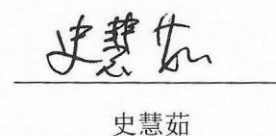 史慧茹
史慧茹